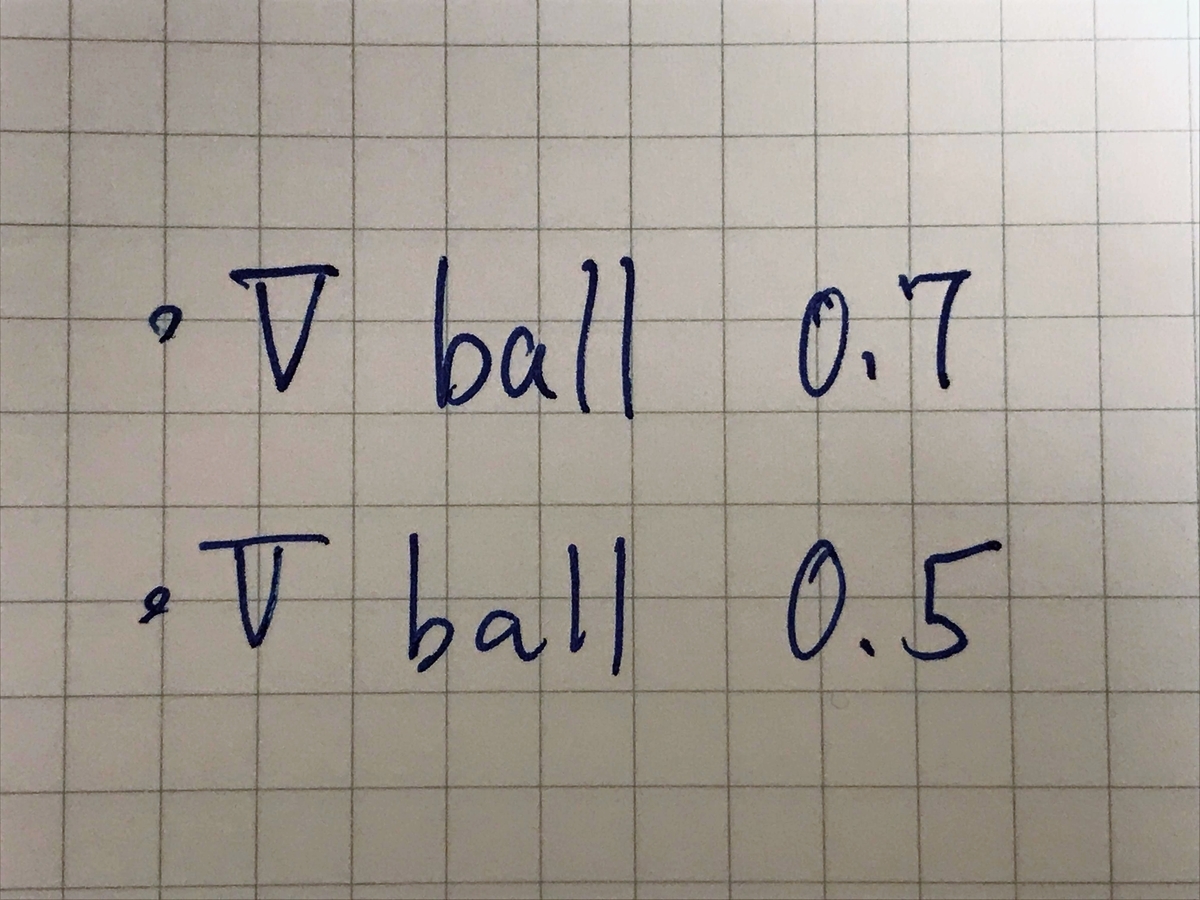 • V ball 0.7
• V ball 0.5